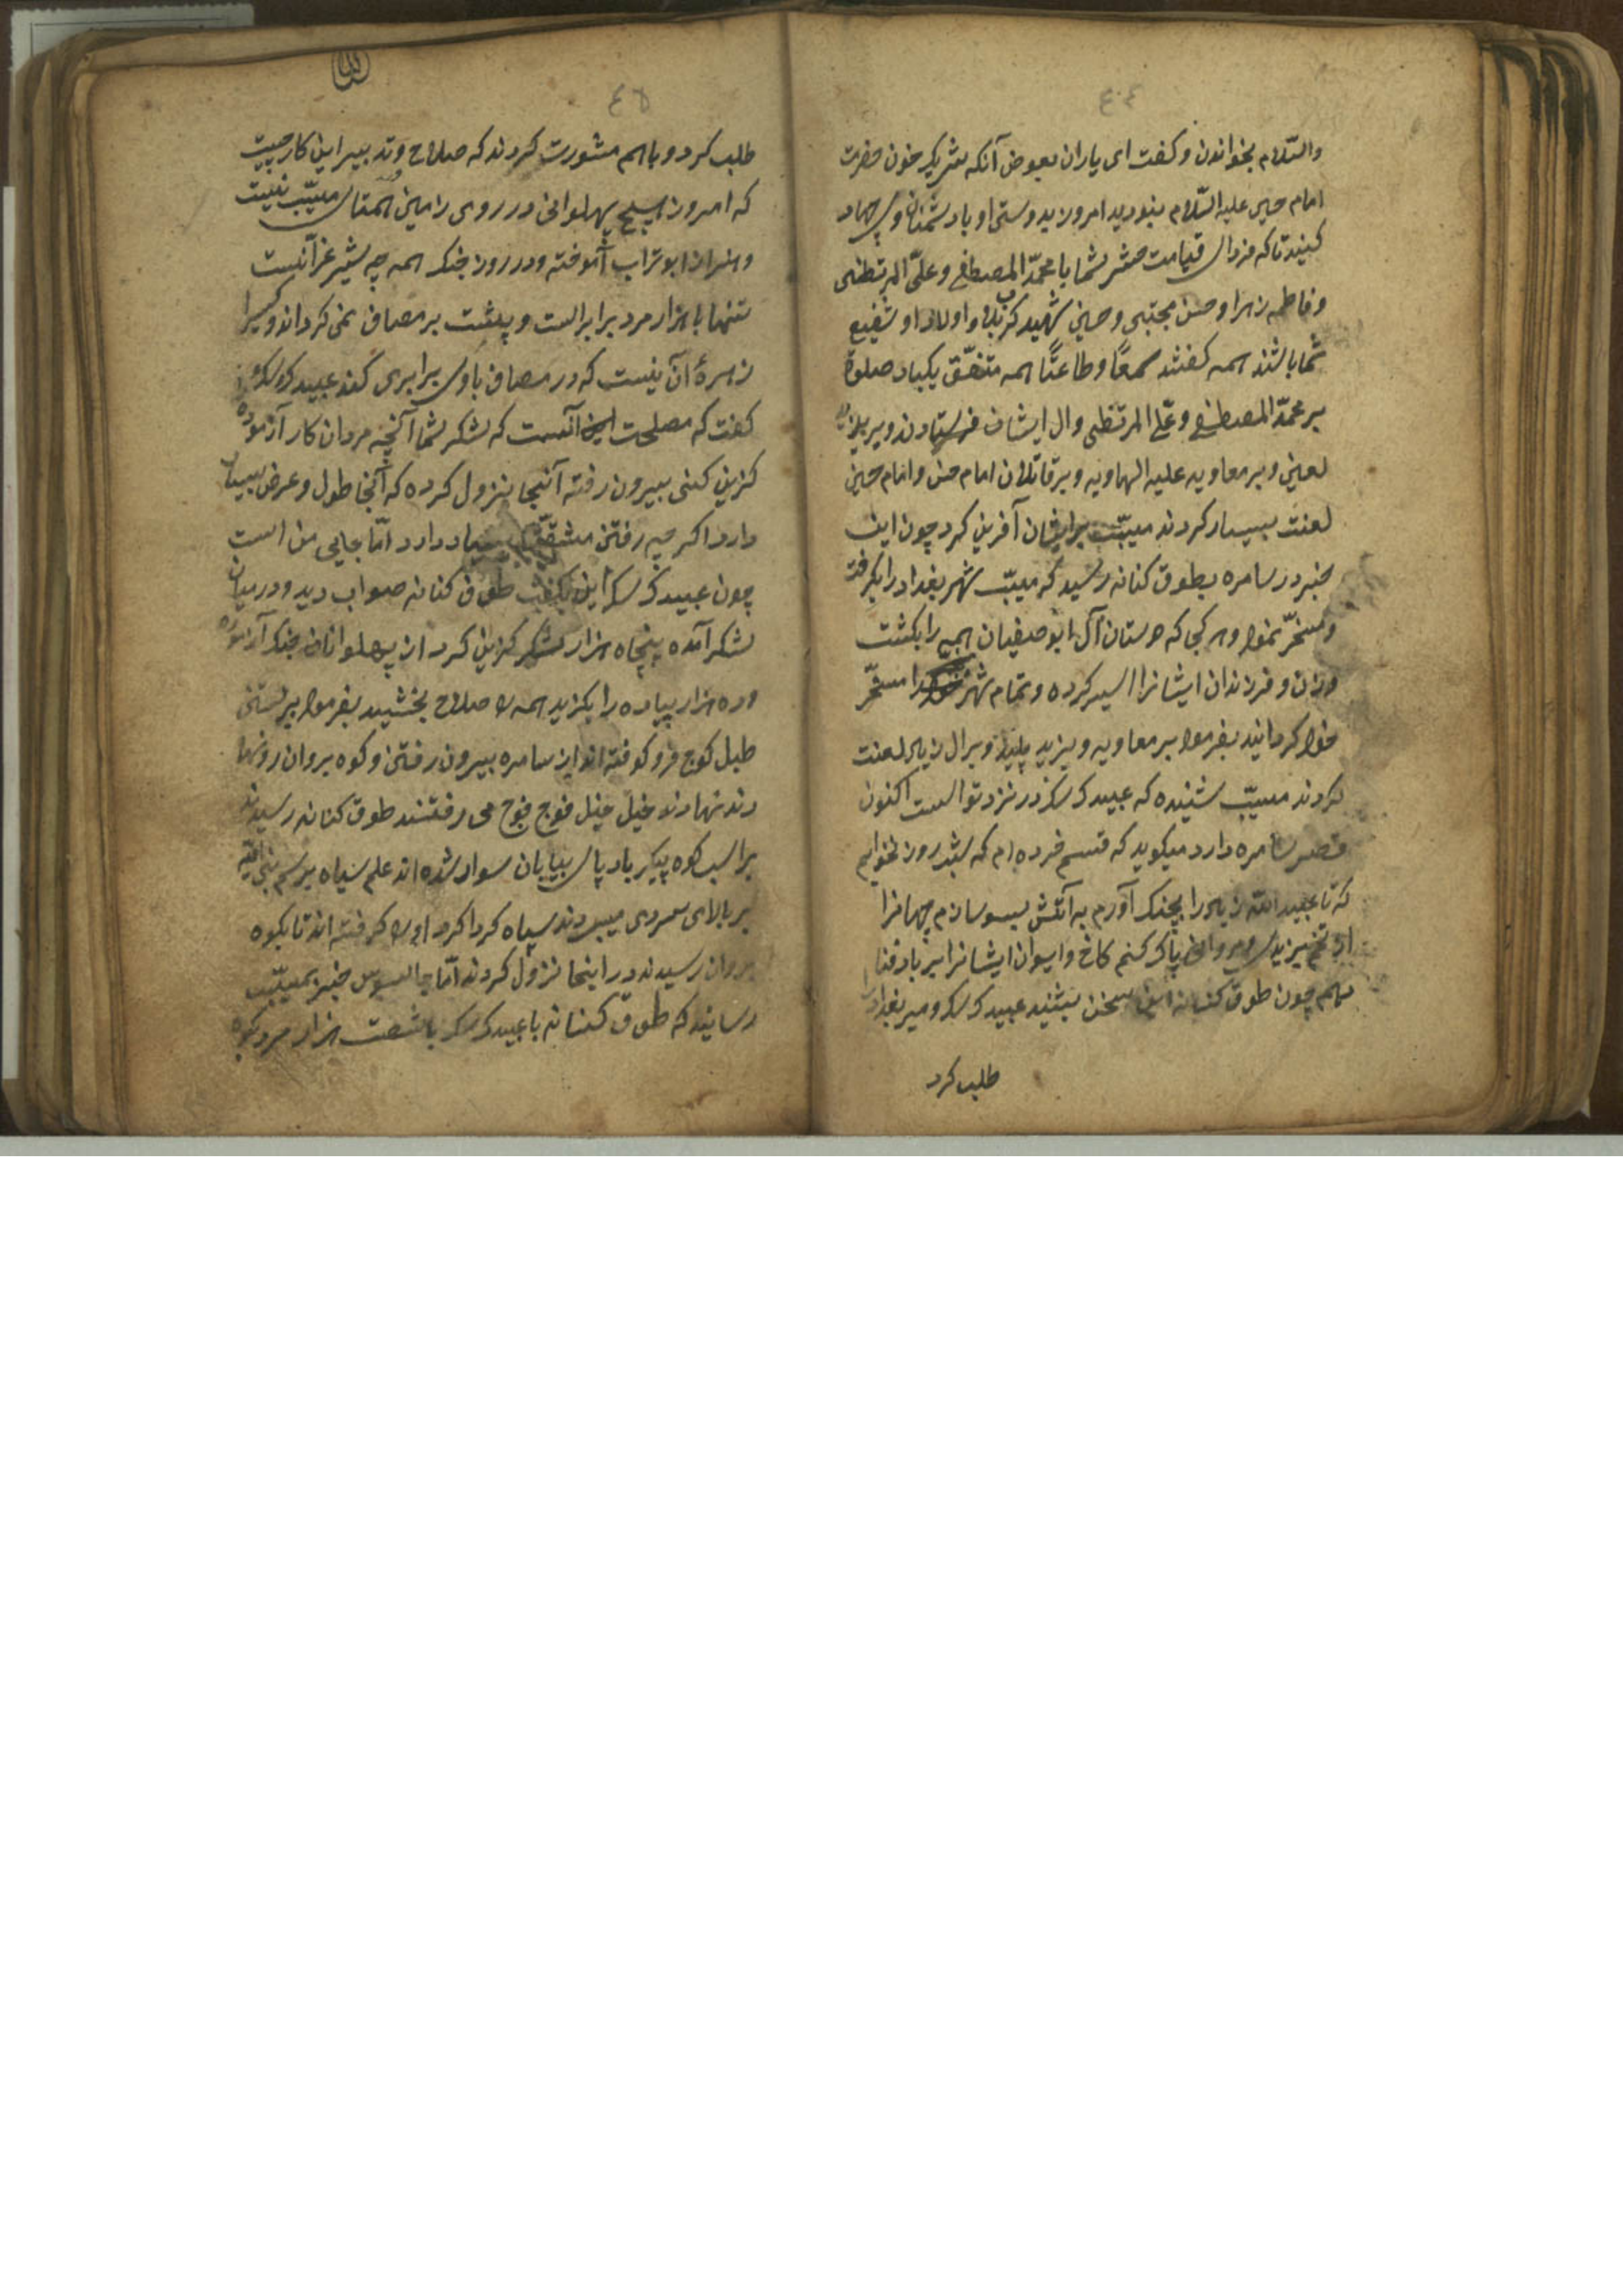 ٤٠٤
والسّلام بخواندن و کفت ای یاران بعوض آنکه شریک خون حضرت
امام حسین علیه السّلام بنودید امروز بدوستی او بادشمنان وی جهاد
کنید تا که فردای قیامت حشر شما با محمّد المصطفی و علیّ المرتظی
و فاطمه زهرا و حسن مجتبی و حسین شهید کربلا و اولاد او شفیع
شما باشند همه کفتند سمعًا و طاعتًا همه متفّق یکبار صلوة
بر محمّد المصطفی و علی المرتظی و ال ایشان فرستادند و بر یزید
لعین و بر معاویه علیه الهاویه و بر قاتلان امام حسن و امام حسین
لعنت بسیار کردند مسیّب بر ایشان آفرین کرد چون این
خبر در سامره بطوق کنانه رسید که مسیّب شهر بغداد را بکرفت
و مسخّر نمود و هر کجا که دوستان آل ابو صفیان همه را بکشت
و زن و فرزندان ایشانرا اسیر کرده و تمام شهر را مسخّر
خود کردانید بفرمود بر معاویه و یزید پلید و بر ال زیاد لعنت
کردند مسیّب شنیده که عبید در نزد تو است اکنون
قصر سامره دارد میکوید که قسم خرده ام که شب روز نخوابم
که تا عبید الله زیاد را بچنک آورم به آتش بسوسازم جهانرا
از تخم یزید و مروان پاک کنم کاخ و ایوان ایشانرا بر باد فنا
دهم چون طوق کنانه این سخن بشنید عبید و میر بغداد را
طلب کرد
٤٥
طلب کرد و باهم مشورت کردند که صلاح و تدبیر این کار چیست
که امروز هیچ پهلوانی در روی زمین همتای مسیّب نیست
و هنر از ابو تراب آموخته و در روز جنک همه چه شیر غرّانست
تنها با هزار مرد برابر است و پشت بر مصاف نمی کرداند و کسیرا
زهرهٔ آن نیست که در مصاف با وی برابری کند عبید
کفت که مصلحت آنست که لشکر شما آنچه مردان کار آزموده
کزین کنی بیرون رفته آنجا نزول کرده که آنجا طول و عرض بسیار
دارد اکر چه رفتن مشقّت بسیار دارد امّا جایی من است
چون عبید این بکفت طوق کنانه صواب دید و در میان
لشکر آمده پنجاه هزار لشکر کزین کرد از پهلوانان جنک آزموده
و ده هزار پیاده را بکزید همه را صلاح بخشید بفرمود برنستن
طبل کوج فرو کوفته اند از سامره بیرون رفتن و کوه بروان رو نها
دند نهادند خیل خیل فوج فوج می رفتند طوق کنانه رسید
بر اسب کوه پیکر باد پای بیابان سوار شده اند علم سیاه برسم بنی امیّه
بر بالای سر وی میبردند سپاه کردا کرد او را کرفته اند تا بکوه
بروان رسیدند در اینجا نزول کردند امّا جاسوس خبر بمسیّب
رسانید که طوق کنانه با عبید با شصت هزار مرد بکوه